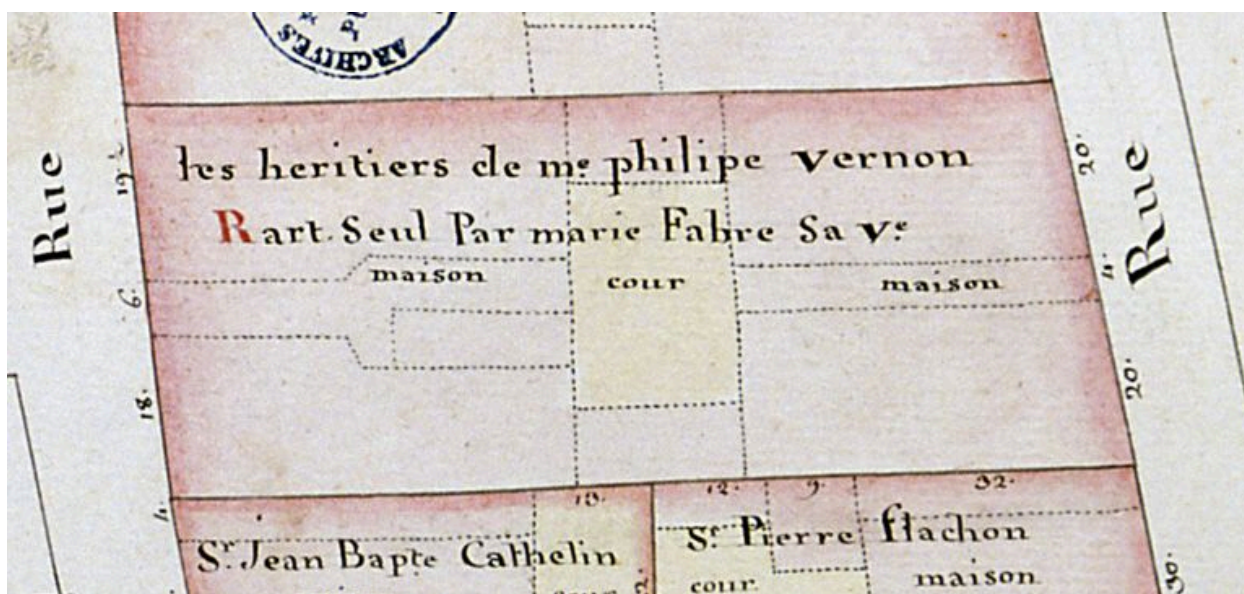 ARCHIVES
les heritiers de me. philipe vernon
R art. Seul Par marie Fabre Sa ve.
maison cour maison
Rue
Rue
19 ½
6.
18.
4.
20.
4.
20.
30.
13. 12. 9. 32.
Sr. Jean Bapte Cathelin
St. Pierre flachon
cour. maison